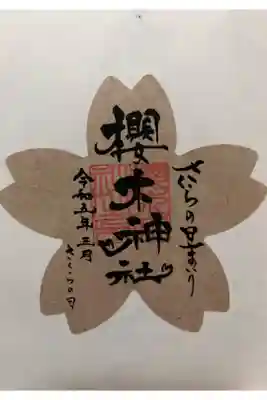 さくらの日まいり
櫻木神社
令和五年三月
さくらの日